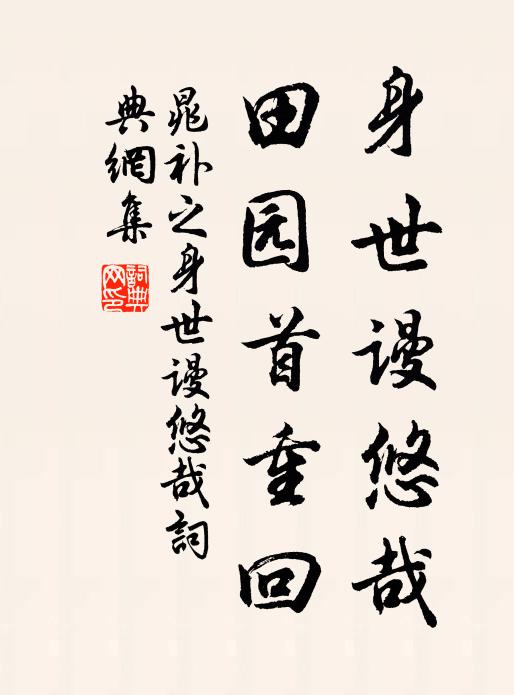 身世谩悠哉
田园首重回
晁补之身世谩悠哉詞
典網集
詞典
网印